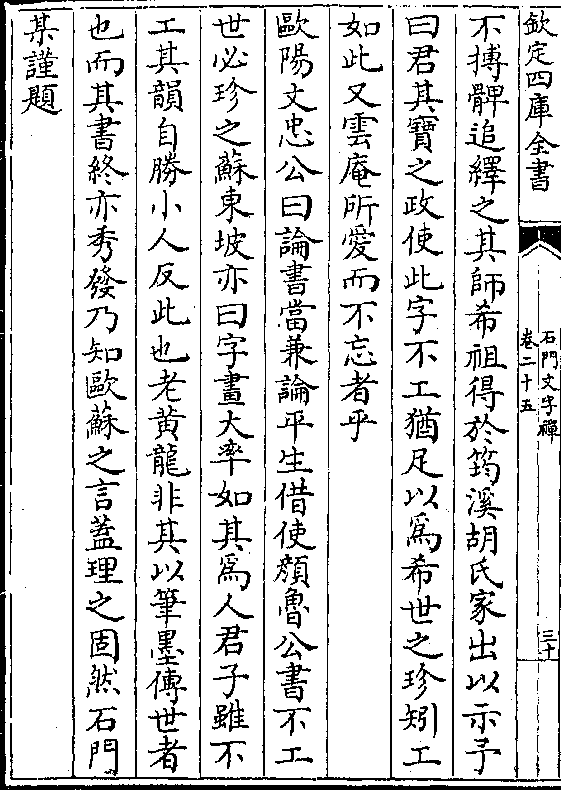 欽定四庫全書
石門文字禪
卷二十五
三十
不摶髀追繹之其師希祖得於筠溪胡氏家出以示予
曰君其寶之政使此字不工猶足以為希世之珍矧工
如此又雲庵所愛而不忘者乎
歐陽文忠公曰論書當兼論平生借使顏魯公書不工
世必珍之蘇東坡亦曰字畫大率如其為人君子雖不
工其韻自勝小人反此也老黃龍非其以筆墨傳世者
也而其書終亦秀發乃知歐蘇之言蓋理之固然石門
某謹題